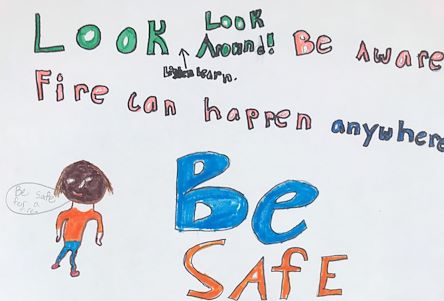 LooK Look Around! Be Aware
Listen Learn.
Fire can happen anywhere
Be safe
for a
Be
SAfE